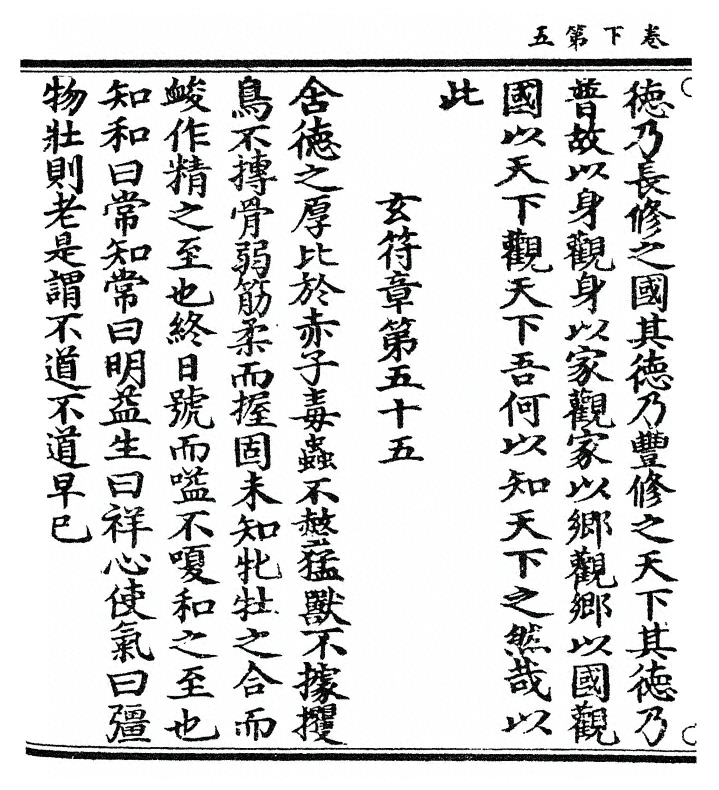 卷下第五
德乃長修之國其德乃豐修之天下其德乃
普故以身觀身以家觀家以鄉觀鄉以國觀
國以天下觀天下吾何以知天下之然哉以
此
玄符章第五十五
含德之厚比於赤子毒蟲不螫猛獸不據攫
鳥不搏骨弱筋柔而握固未知牝牡之合而
峻作精之至也終日號而嗌不嗄和之至也
知和曰常知常曰明益生曰祥心使氣曰彊
物壯則老是謂不道不道早已